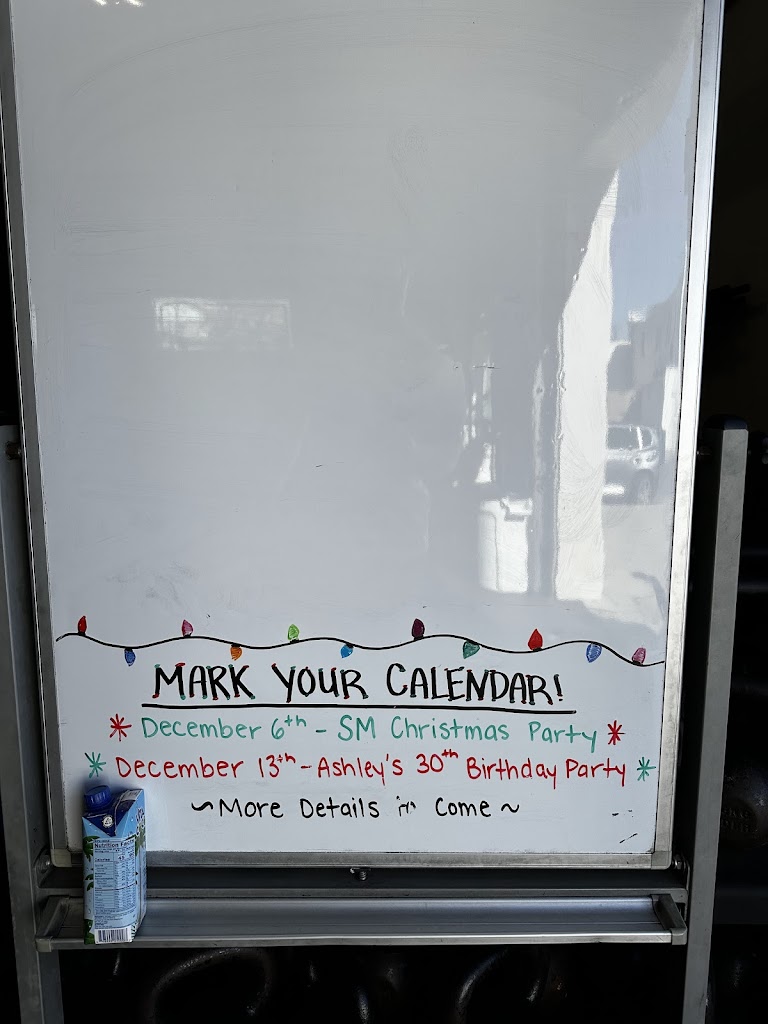 MARK YOUR CALENDAR!
* December 6th - SM Christmas Party *
* December 13th - Ashley's 30th Birthday Party *
~ More Details Come ~
Nutrition Facts